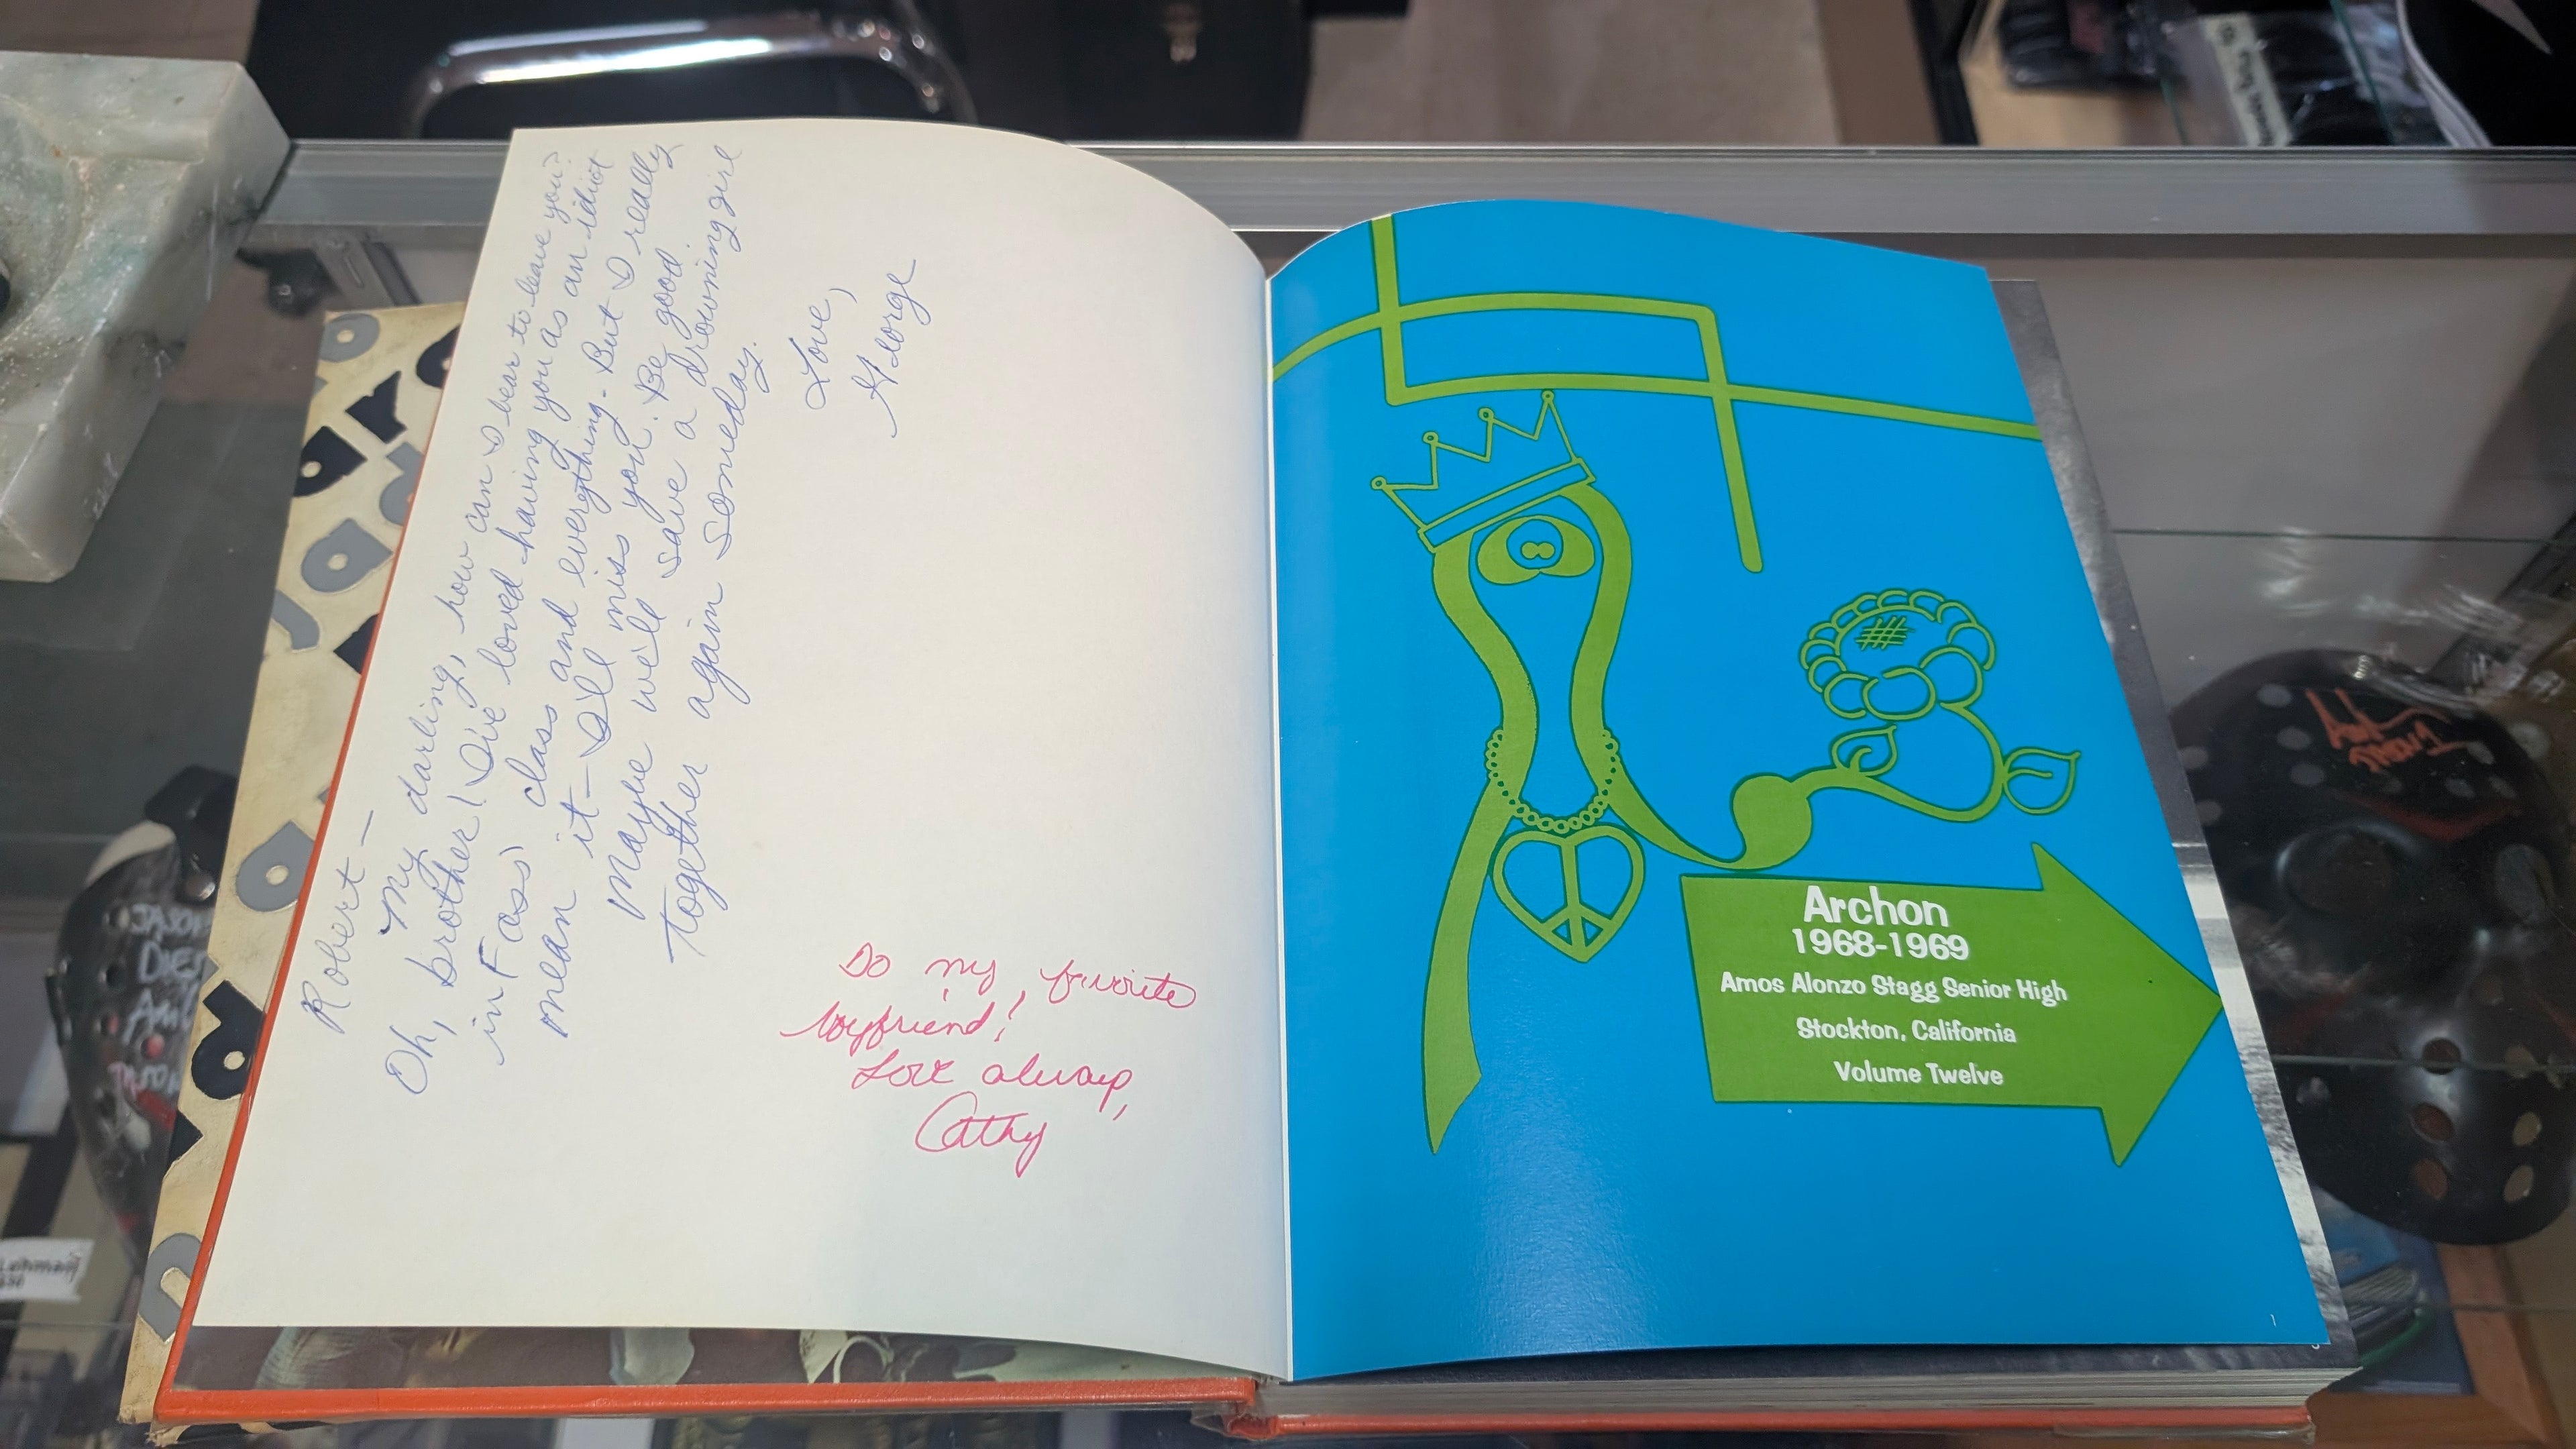 Robert —
My darling, how can I bear to leave you?
Oh, brother! I've loved having you as an idiot
in Fass' class and everything. But I really
mean it — I'll miss you. Be good.
Maybe we'll save a drowning girl
together again someday.
Love,
George
To my favorite
boyfriend!
Love always,
Cathy
Archon
1968-1969
Amos Alonzo Stagg Senior High
Stockton, California
Volume Twelve
1
JASON
DIES
Lehman